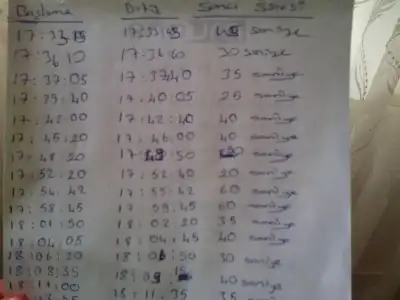 Başlama Bitiş Sancı Süresi
17:33 saniye
17:36:10 17:36:40 30 saniye
17:37:05 17:37:40 35 saniye
17:39:40 17:40:05 25 saniye
17:42:00 17:42:40 40 saniye
17:45:20 17:46:00 40 saniye
17:48:20 17:48:50 saniye
17:52:20 17:52:40 20 saniye
17:54:42 17:55:42 60 saniye
17:58:45 17:59:45 60 saniye
18:01:50 18:02:20 35 saniye
18:04:05 18:04:45 40 saniye
18:06:20 18:06:50 30 saniye
18:08:35 18:09:
18:11:00 40 saniye
18:11:35 35